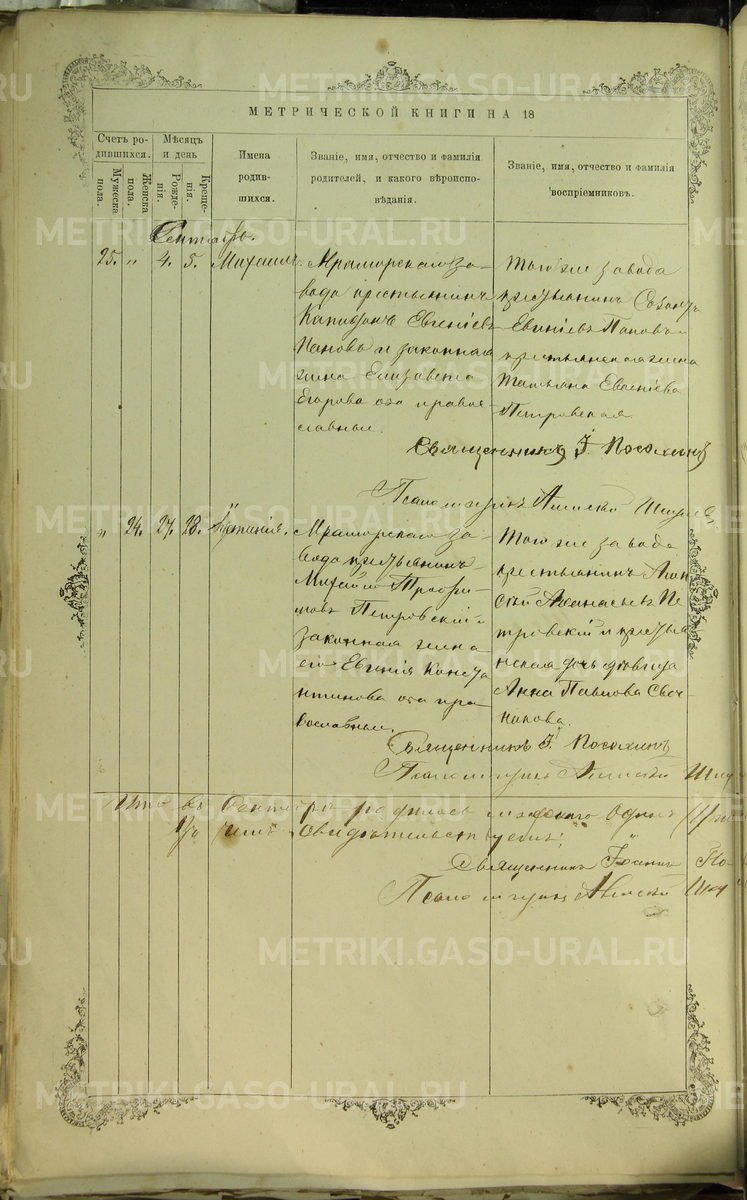 МЕТРИЧЕСКОЙ КНИГИ НА 18
Счетъ родившихся.
Мужеска пола.
Женска пола.
Мѣсяцъ и день
Рожденія.
Крещенія.
Имена родившихся.
Званіе, имя, отчество и фамилія родителей, и какого вѣроисповѣданія.
Званіе, имя, отчество и фамилія воспріемниковъ.
Сентябрь.
25. " 4. 5. Михаилъ.
Мраморскаго за-
вода крестьянинъ
Капитонъ Евгеніевъ
Пановъ и законная
жена Елизавета
Егорова оба право-
славные.
Того же завода
крестьянинъ Созонтъ
Евгеніевъ Пановъ
крестьянская жена
Татьяна Евгеніева
Петровская
Священникъ І. Посохинъ
Псаломщикъ Алексѣй
" 24. 27. 28.
Мраморскаго за-
вода крестьянинъ
Михаилъ Трофи-
мовъ Петровскій и
законная жена
его Евгенія Конста
нтинова оба пра-
вославные.
Того же завода
крестьянинъ
Афанасьевъ Пе-
тровскій и крестья
нская дочь дѣвица
Анна Павлова Свеч-
никова.
Священникъ І. Посохинъ
Псаломщикъ Алексѣй
Что въ Сентябрѣ родилось мужескаго одинъ
свидѣтельствуемъ:
Священникъ Іоаннъ По-
Псаломщикъ Алексѣй
METRIKI.GASO-URAL.RU